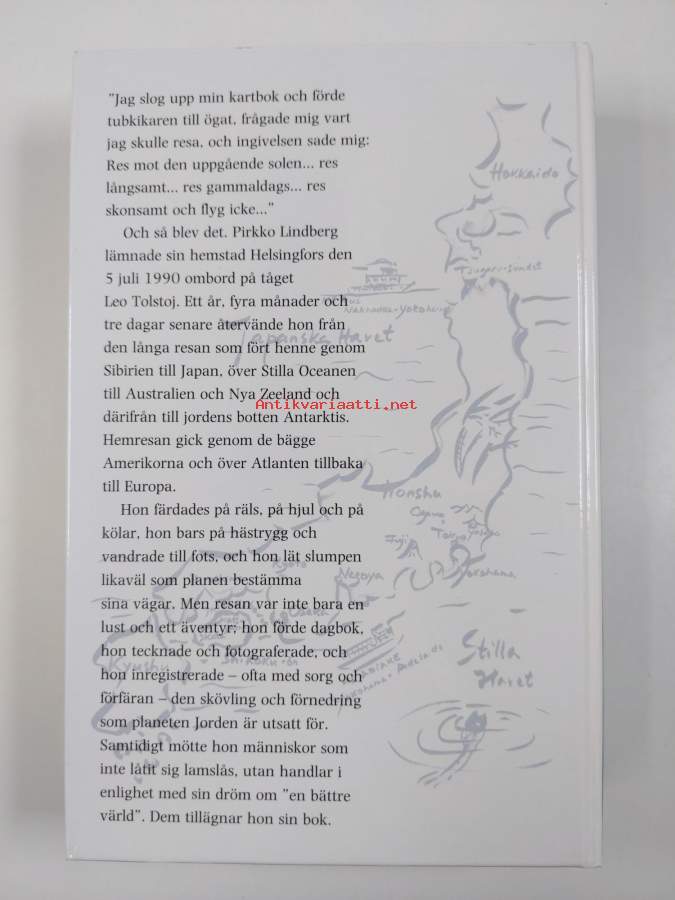 "Jag slog upp min kartbok och förde
tubkikaren till ögat, frågade mig vart
jag skulle resa, och ingivelsen sade mig:
Res mot den uppgående solen... res
långsamt... res gammaldags... res
skonsamt och flyg icke..."
Och så blev det. Pirkko Lindberg
lämnade sin hemstad Helsingfors den
5 juli 1990 ombord på tåget
Leo Tolstoj. Ett år, fyra månader och
tre dagar senare återvände hon från
den långa resan som fört henne genom
Sibirien till Japan, över Stilla Oceanen
till Australien och Nya Zeeland och
därifrån till jordens botten Antarktis.
Hemresan gick genom de bägge
Amerikorna och över Atlanten tillbaka
till Europa.
Hon färdades på räls, på hjul och på
kölar, hon bars på hästrygg och
vandrade till fots, och hon lät slumpen
likaväl som planen bestämma
sina vägar. Men resan var inte bara en
lust och ett äventyr; hon förde dagbok,
hon tecknade och fotograferade, och
hon inregistrerade – ofta med sorg och
förfäran – den skövling och förnedring
som planeten Jorden är utsatt för.
Samtidigt mötte hon människor som
inte låtit sig lamslås, utan handlar i
enlighet med sin dröm om "en bättre
värld". Dem tillägnar hon sin bok.
Antikvariaatti.net
Hokkaido
Japanska Havet
Honshu
Nagoya
Tokyo
Yokohama
Kyushu
Shikoku
Stilla
Havet